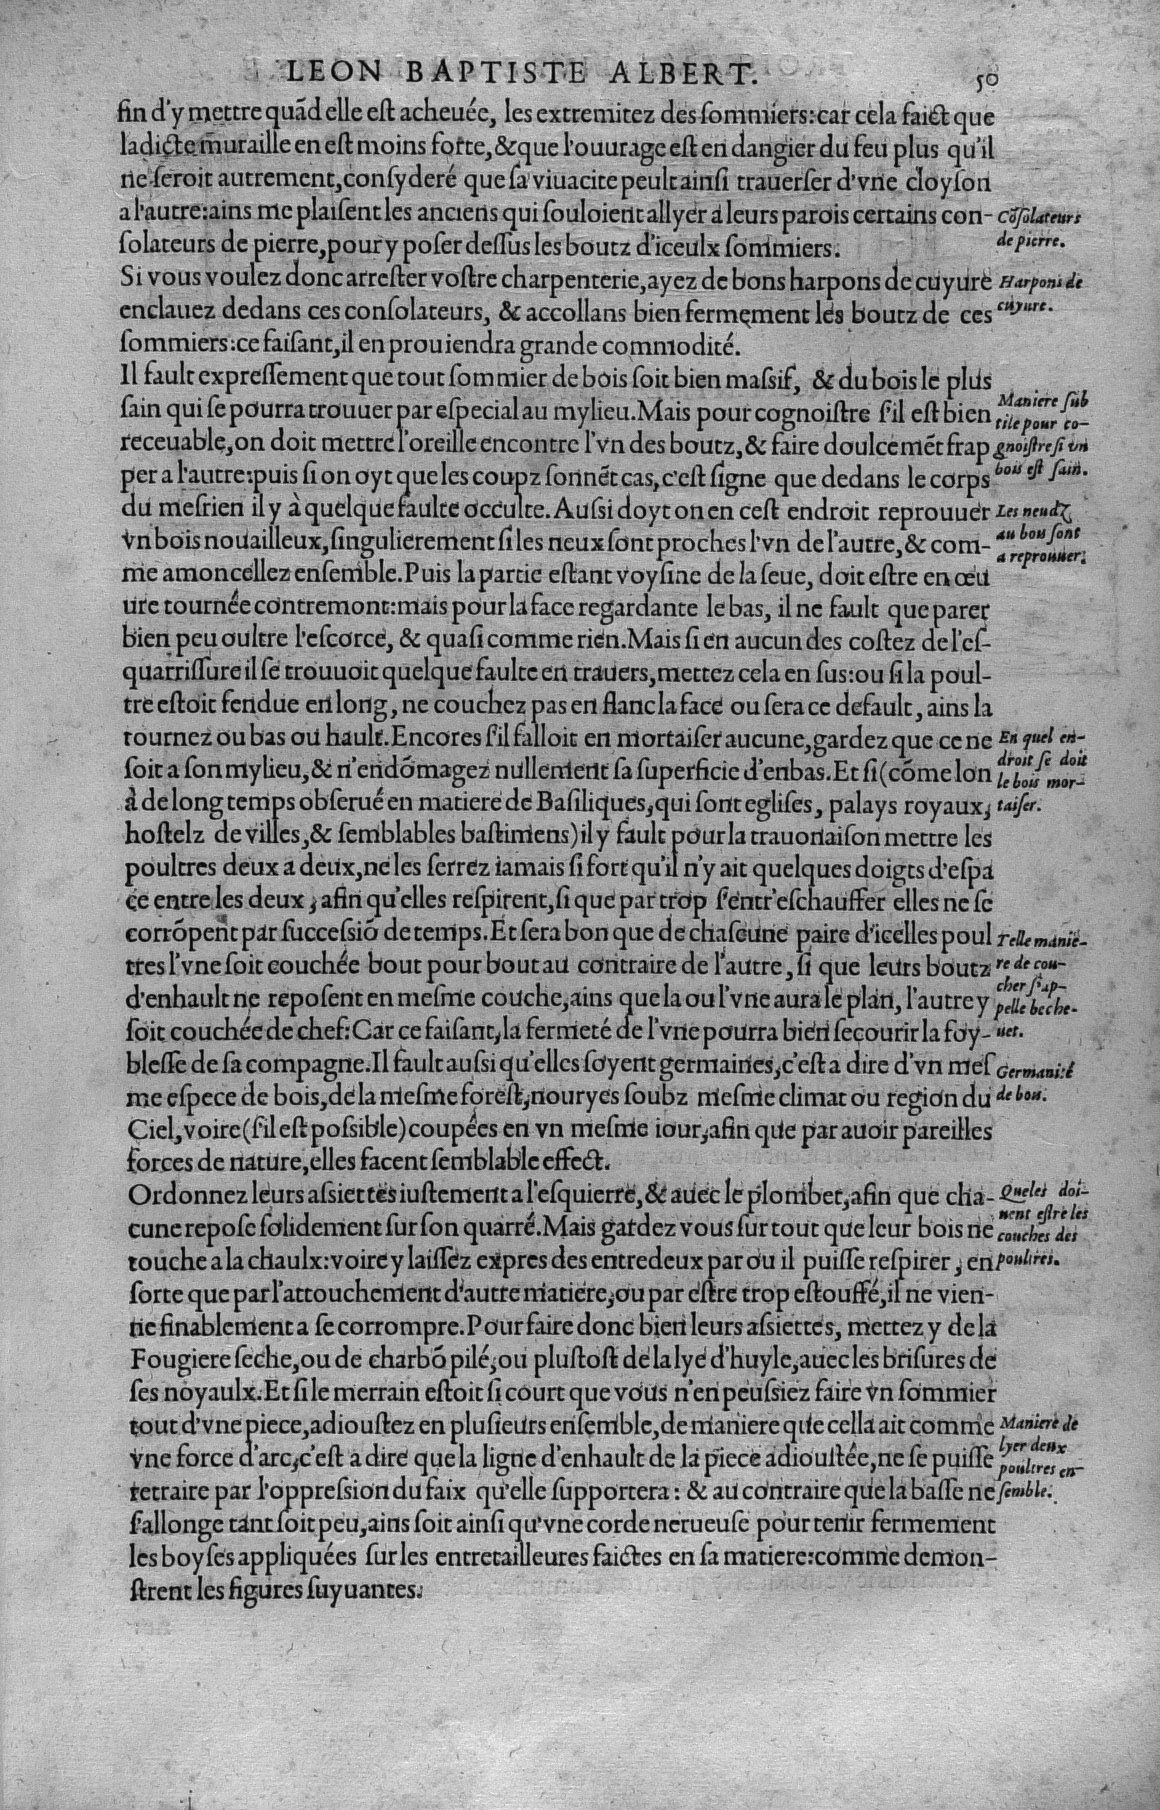 LEON BAPTISTE ALBERT. 50
fin d'y mettre quãd elle est acheuée, les extremitez des sommiers:car cela faict que
ladicte muraille en est moins forte, &que l'ouurage est en dangier du feu plus qu'il
ne seroit autrement, consyderé que sa viuacite peult ainsi trauerser d'vne cloyson
a l'autre:ains me plaisent les anciens qui souloient allyer a leurs parois certains con-
solateurs de pierre, pour y poser dessus les boutz d'iceulx sommiers.
Cõsolateurs
de pierre.
Si vous voulez donc arrester vostre charpenterie, ayez de bons harpons de cuyure
enclauez dedans ces consolateurs, & accollans bien fermement les boutz de ces
sommiers:ce faisant, il en prouiendra grande commodité.
Harpons de
cuyure.
Il fault expressement que tout sommier de bois soit bien massif, & du bois le plus
sain qui se pourra trouuer par especial au mylieu. Mais pour cognoistre s'il est bien
receuable, on doit mettre l'oreille encontre l'vn des boutz, & faire doulcemẽt frap
per a l'autre:puis si on oyt que les coupz sonnẽt cas, c'est signe que dedans le corps
du mesrien il y à quelque faulte occulte. Aussi doyt on en cest endroit reprouuer
vn bois nouailleux, singulierement si les neux sont proches l'vn de l'autre, & com-
me amoncellez ensemble. Puis la partie estant voysine de la seue, doit estre en œu
ure tournée contremont:mais pour la face regardante le bas, il ne fault que parer
bien peu oultre l'escorce, & quasi comme rien. Mais si en aucun des costez de l'es-
quarrissure il se trouuoit quelque faulte en trauers, mettez cela en sus:ou si la poul-
tre estoit fendue en long, ne couchez pas en flanc la face ou sera ce default, ains la
tournez ou bas ou hault. Encores s'il falloit en mortaiser aucune, gardez que ce ne
soit a son mylieu, & n'endõmagez nullement sa superficie d'enbas. Et si (cõme lon
à de long temps obserué en matiere de Basiliques, qui sont eglises, palays royaux,
hostelz de villes, & semblables bastimens) il y fault pour la trauonaison mettre les
poultres deux a deux, ne les serrez iamais si fort qu'il n'y ait quelques doigts d'espa
ce entre les deux, afin qu'elles respirent, si que par trop s'entr'eschauffer elles ne se
corrõpent par successiõ de temps. Et sera bon que de chascune paire d'icelles poul
tres l'vne soit couchée bout pour bout au contraire de l'autre, si que leurs boutz
d'enhault ne reposent en mesme couche, ains que la ou l'vne aura le plan, l'autre y
soit couchée de chef: Car ce faisant, la fermeté de l'vne pourra bien secourir la foy-
blesse de sa compagne. Il fault aussi qu'elles soyent germaines, c'est a dire d'vn mes
me espece de bois, de la mesme forest, nouryes soubz mesme climat ou region du
Ciel, voire (s'il est possible) coupées en vn mesme iour, afin que par auoir pareilles
forces de nature, elles facent semblable effect.
Maniere sub
tile pour co-
gnoistre si vn
bois est sain.
Les neudz
au bou sont
a reprouuer.
En quel en-
droit se doit
le bois mor-
taiser.
Telle maniè-
re de cou-
cher s'ap-
pelle beche-
uet.
Germanité
de bou.
Ordonnez leurs assiettes iustement a l'esquierre, & auec le plombet, afin que cha-
cune repose solidement sur son quarré. Mais gardez vous sur tout que leur bois ne
touche a la chaulx:voire y laissez expres des entredeux par ou il puisse respirer, en
sorte que par l'attouchement d'autre matiere, ou par estre trop estouffé, il ne vien-
ne finablement a se corrompre. Pour faire donc bien leurs assiettes, mettez y de la
Fougiere seche, ou de charbõ pilé, ou plustost de la lye d'huyle, auec les brisures de
ses noyaulx. Et si le merrain estoit si court que vous n'en peussiez faire vn sommier
tout d'vne piece, adioustez en plusieurs ensemble, de maniere que cella ait comme
vne force d'arc, c'est a dire que la ligne d'enhault de la piece adioustée, ne se puisse
retraire par l'oppression du faix qu'elle supportera: & au contraire que la basse ne
s'allonge tant soit peu, ains soit ainsi qu'vne corde nerueuse pour tenir fermement
les boyses appliquées sur les entretailleures faictes en sa matiere:comme demon-
strent les figures suyuantes.
Queles doi-
uent estre les
couches des
poultres.
Maniere de
lyer deux
poultres en-
semble.